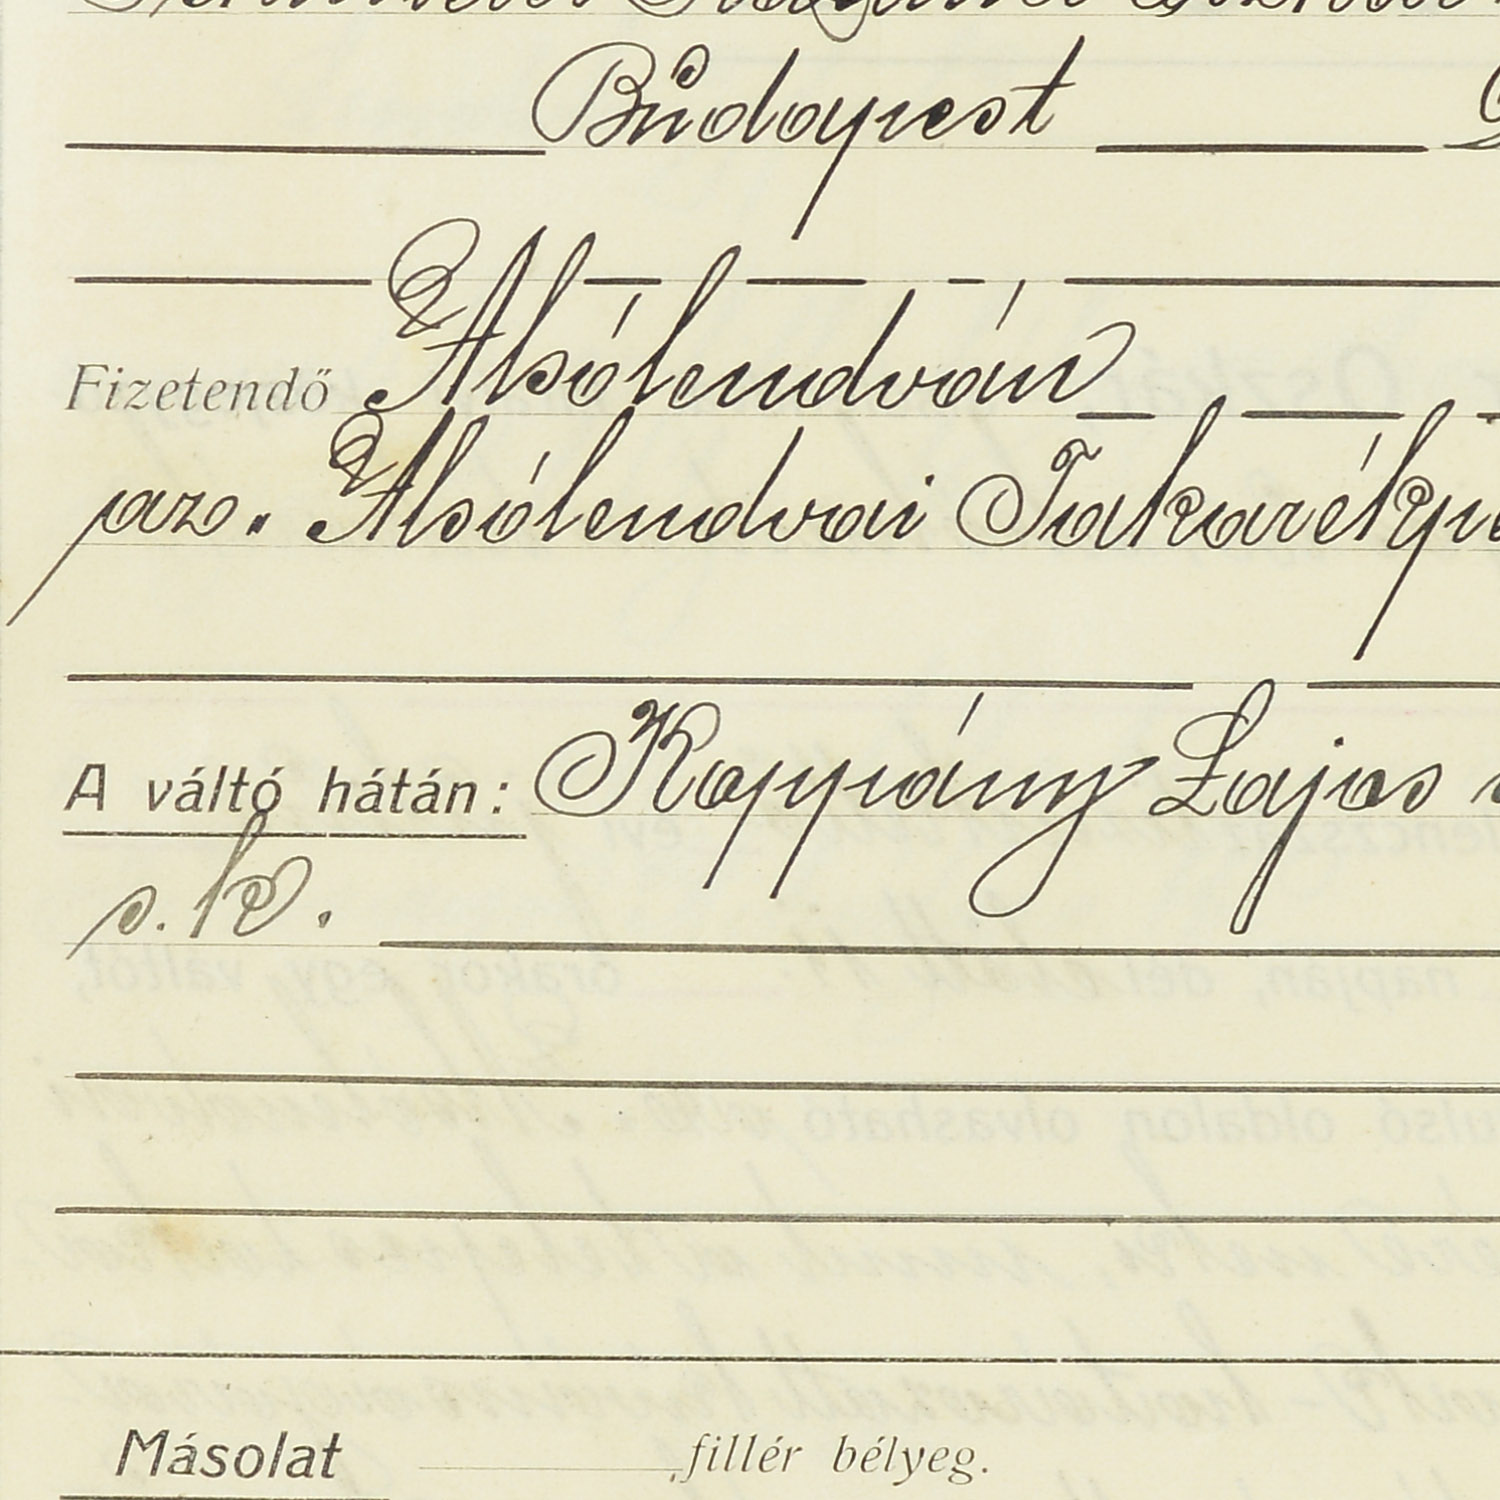 Budapest
Fizetendő Alsólendván
az. Alsólendvai Takarékpé
A váltó hátán: Koppány Lajos s
s. k.
Másolat fillér bélyeg.